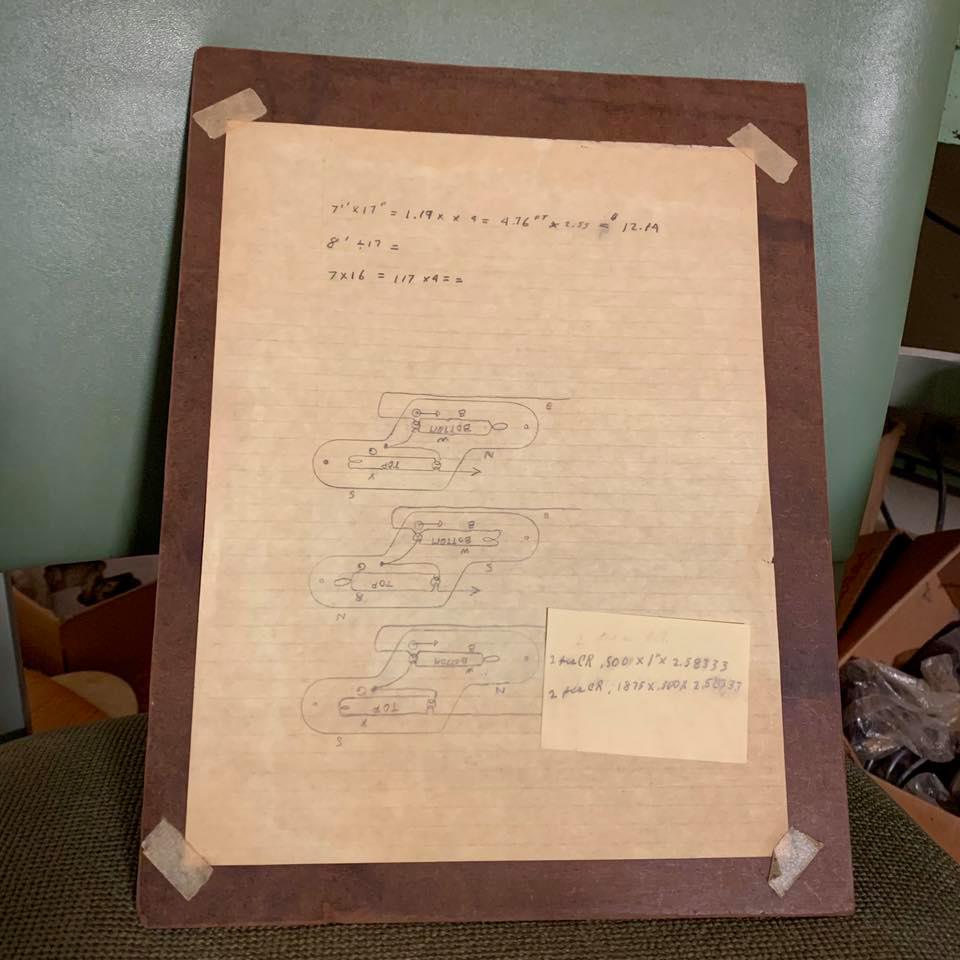 7" x 17" = 1.19 x x 4 = 4.76 FT x 2.55 = 12.14
8' ÷ 17 =
7 x 16 = 117 x 4 = =
B
B
BOTTOM
W
N
G
TOP
S
B
B
BOTTOM
W
S
G
TOP
N
B
BOTTOM
W
N
G
TOP
S
2 pcs CR .500 x 1" x 2.58333
2 pcs CR .1875 x .500 x